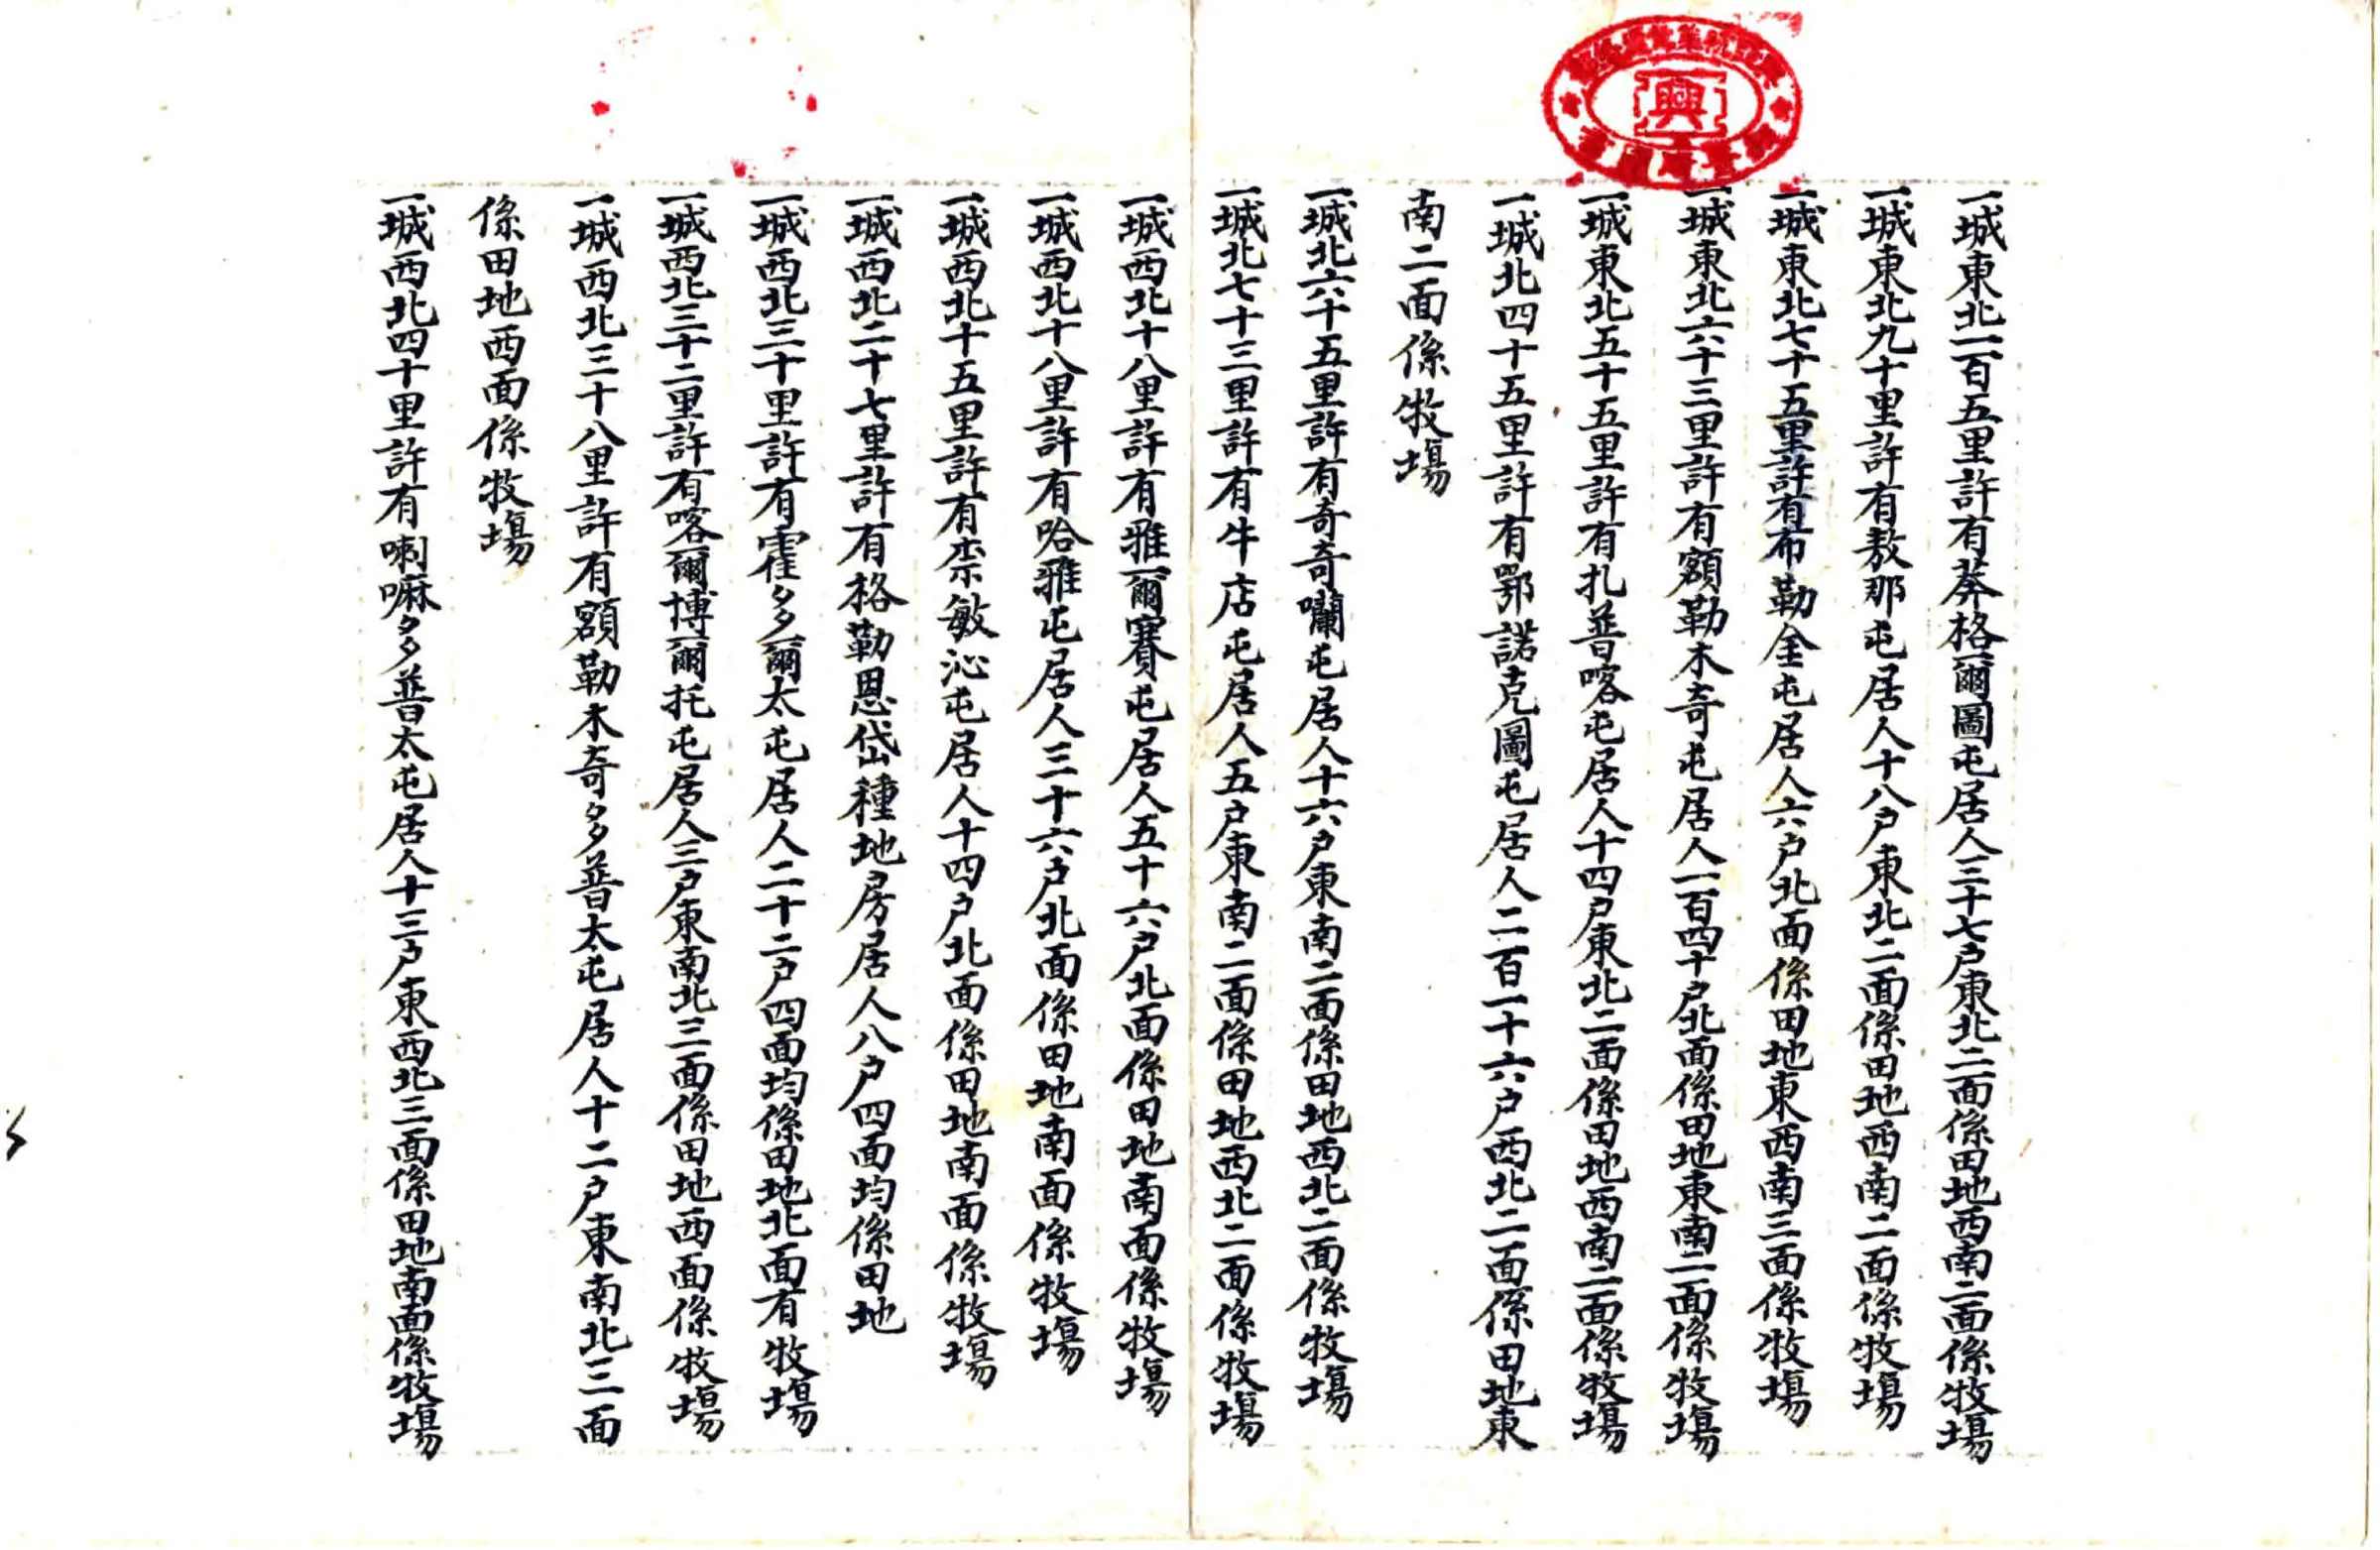 一城東北一百五里許有莾格爾圖屯居人三十七户東北二面係田地西南二面係牧塲
一城東北九十里許有敖那屯居人十八户東北二面係田地西南二面係牧塲
一城東北七十五里許有布勒金屯居人六户北面係田地東西南三面係牧塲
一城東北六十三里許有額勒木奇屯居人一百四十户北面係田地東南二面係牧塲
一城東北五十五里許有扎普喀屯居人十四户東北二面係田地西南二面係牧塲
一城北四十五里許有鄂諾克圖屯居人二百一十六户西北二面係田地東
南二面係牧塲
一城北六十五里許有奇奇囒屯居人十六户東南二面係田地西北二面係牧塲
一城北七十三里許有牛店屯居人五户東南二面係田地西北二面係牧塲
一城西北十八里許有雅爾賽屯居人五十六户北面係田地南面係牧塲
一城西北十八里許有哈雅屯居人三十六户北面係田地南面係牧塲
一城西北十五里許有柰敏沁屯居人十四户北面係田地南面係牧塲
一城西北二十七里許有格勒恩岱種地房居人八户四面均係田地
一城西北三十里許有霍多爾太屯居人二十二户四面均係田地北面有牧塲
一城西北三十二里許有喀爾博爾托屯居人三户東南北三面係田地西面係牧塲
一城西北三十八里許有額勒木奇多普太屯居人十二户東南北三面
係田地西面係牧塲
一城西北四十里許有喇嘛多普太屯居人十三户東西北三面係田地南面係牧塲
興